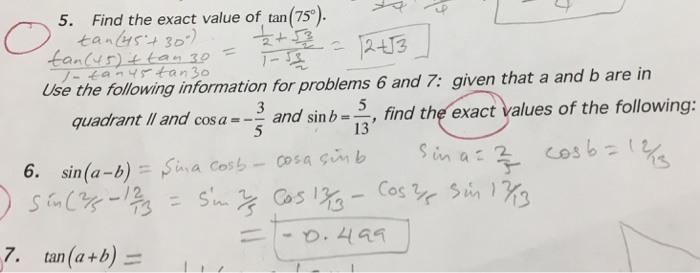 5. Find the exact value of tan(75°).
tan(45°+30°)
tan(45)+tan 30 / 1-tan45 tan30 = 1/2+√3/2 / 1-√3/2 = 2+√3
Use the following information for problems 6 and 7: given that a and b are in
quadrant II and cos a = -3/5 and sin b = 5/13, find the exact values of the following:
6. sin(a-b) = sin a cosb - cosa sin b sin a = 2/5 cos b = 12/13
sin(2/5 - 12/13 = sin 2/5 cos 12/13 - cos 2/5 sin 12/13
= -0.499
7. tan(a+b) =